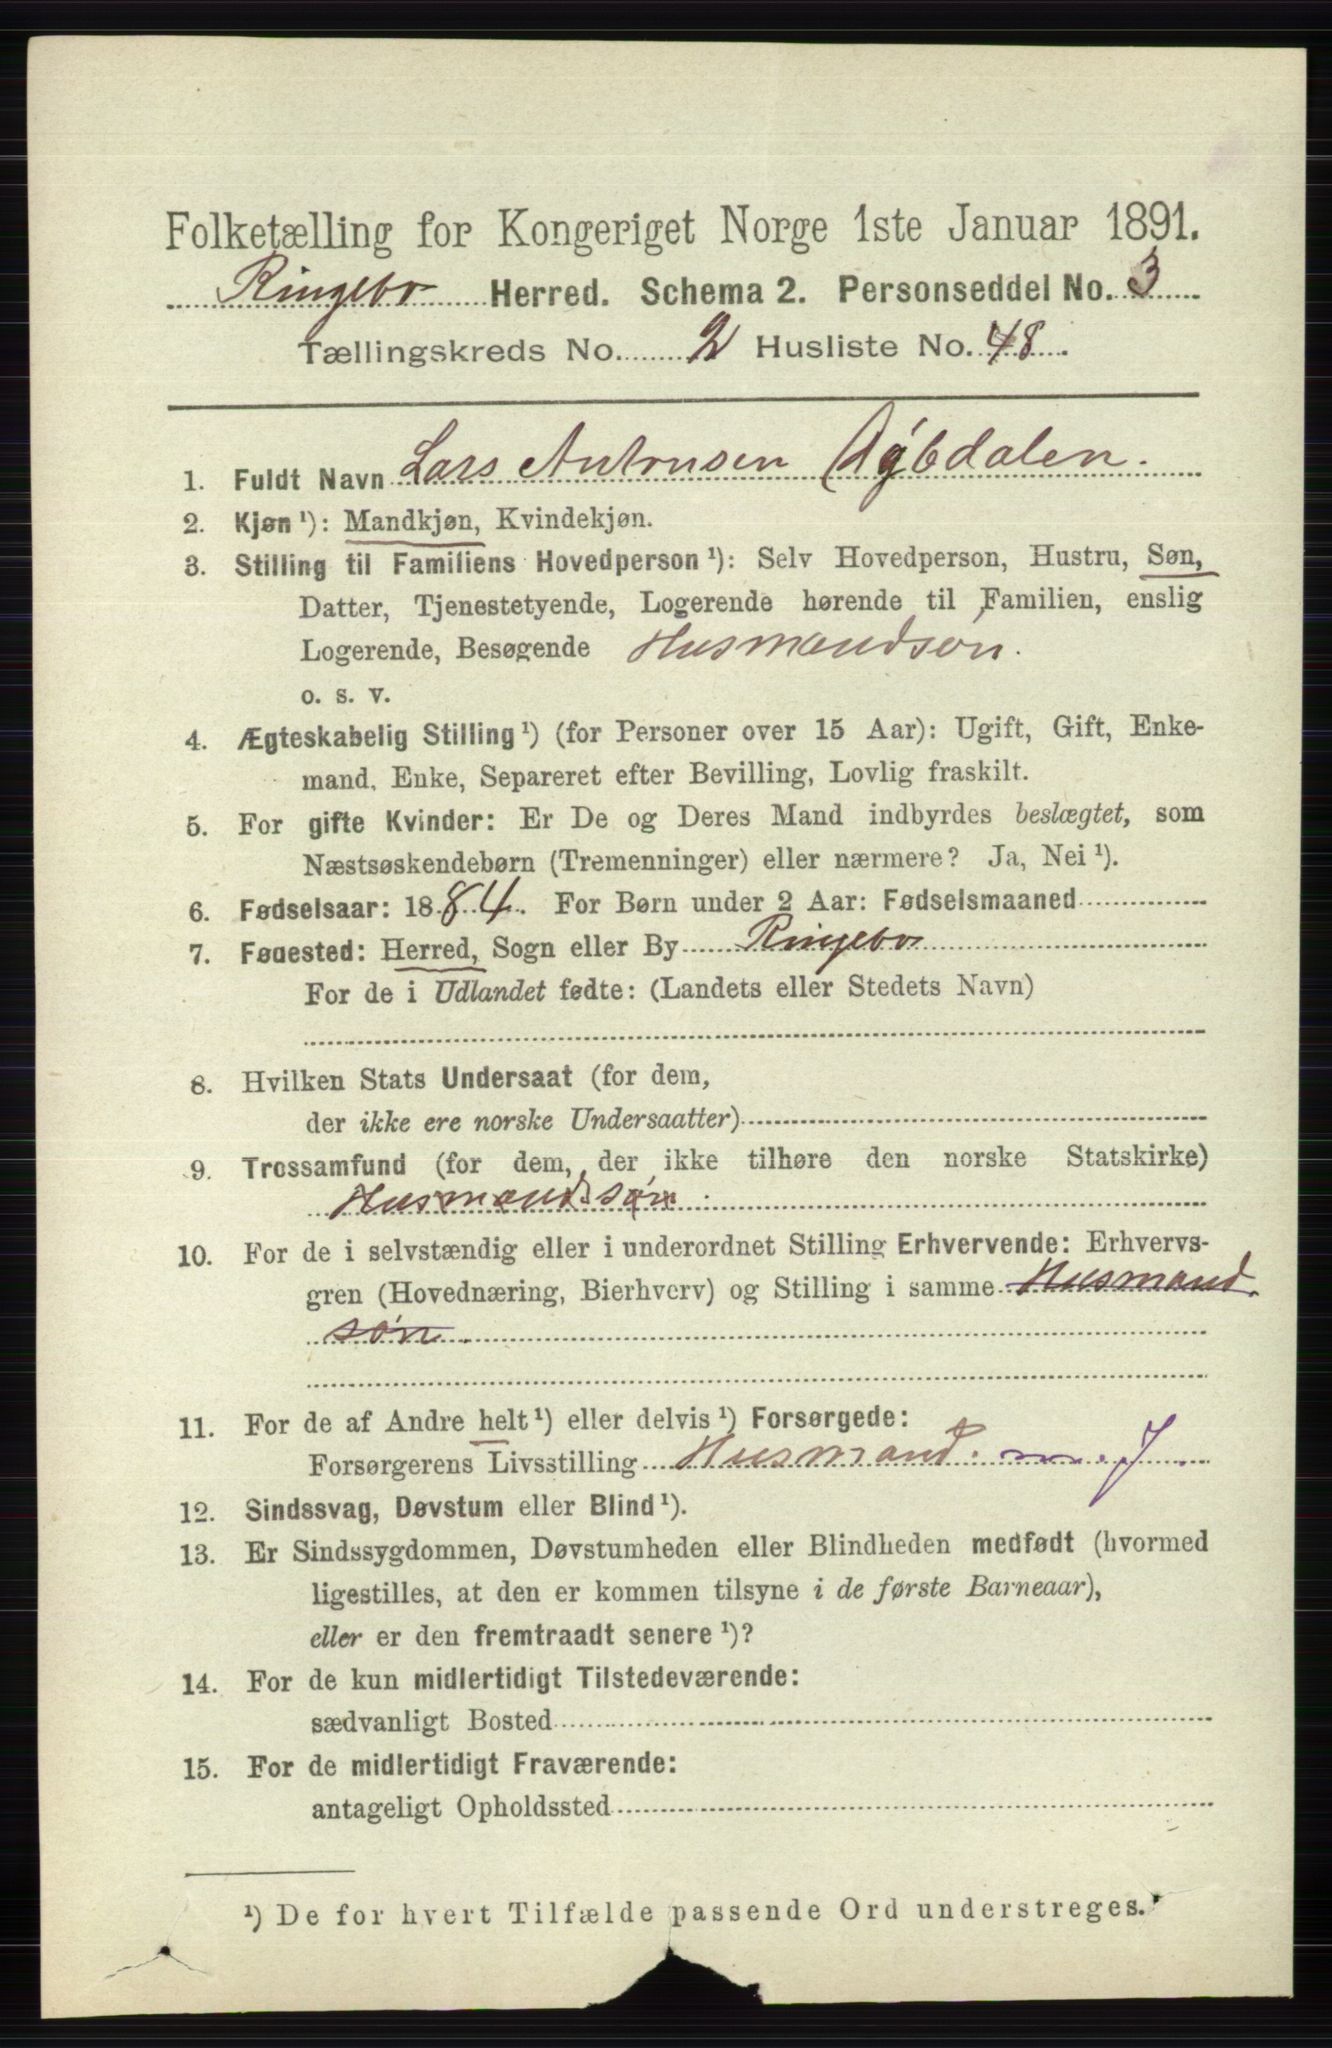 Folketælling for Kongeriget Norge 1ste Januar 1891.
Ringebo Herred. Schema 2. Personseddel No. 3
Tællingskreds No. 2 Husliste No. 48.
1. Fuldt Navn Lars Antonsen Dybdalen.
2. Kjøn ¹): Mandkjøn, Kvindekjøn.
3. Stilling til Familiens Hovedperson ¹): Selv Hovedperson, Hustru, Søn,
Datter, Tjenestetyende, Logerende hørende til Familien, enslig
Logerende, Besøgende Husmandsøn.
o. s. v.
4. Ægteskabelig Stilling ¹) (for Personer over 15 Aar): Ugift, Gift, Enke-
mand, Enke, Separeret efter Bevilling, Lovlig fraskilt.
5. For gifte Kvinder: Er De og Deres Mand indbyrdes beslægtet, som
Næstsøskendebørn (Tremenninger) eller nærmere? Ja, Nei ¹).
6. Fødselsaar: 1884. For Børn under 2 Aar: Fødselsmaaned
7. Fødested: Herred, Sogn eller By Ringebo
For de i Udlandet fødte: (Landets eller Stedets Navn)
8. Hvilken Stats Undersaat (for dem,
der ikke ere norske Undersaatter)
9. Trossamfund (for dem, der ikke tilhøre den norske Statskirke)
Husmandssøn.
10. For de i selvstændig eller i underordnet Stilling Erhvervende: Erhvervs-
gren (Hovednæring, Bierhverv) og Stilling i samme Husmand
søn.
11. For de af Andre helt ¹) eller delvis ¹) Forsørgede:
Forsørgerens Livsstilling Husmand. m. J.
12. Sindssvag, Døvstum eller Blind ¹).
13. Er Sindssygdommen, Døvstumheden eller Blindheden medfødt (hvormed
ligestilles, at den er kommen tilsyne i de første Barneaar),
eller er den fremtraadt senere ¹)?
14. For de kun midlertidigt Tilstedeværende:
sædvanligt Bosted
15. For de midlertidigt Fraværende:
antageligt Opholdssted
¹) De for hvert Tilfælde passende Ord understreges.